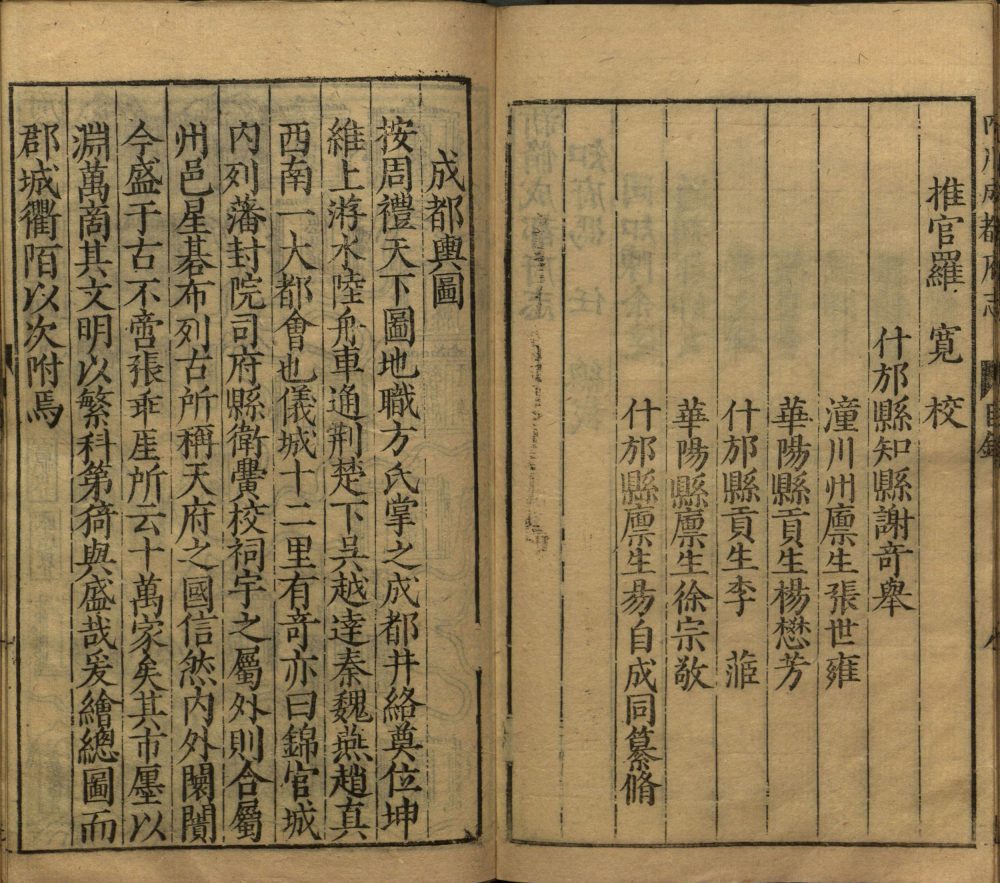 成都府志
目錄
推官羅寬校
什邡縣知縣謝奇舉
潼川州廪生張世雍
華陽縣貢生楊懋芳
什邡縣貢生李
華陽縣廪生徐宗敬
什邡縣廪生昜自成同纂脩
成都輿圖
按周禮天下圖地職方氏掌之成都井絡奠位坤
維上游水陸舟車通荆楚下吳越達秦魏燕趙真
西南一大都會也儀城十二里有奇亦曰錦官城
内列藩封院司府縣衛黌校祠宇之屬外則合屬
州邑星碁布列古所稱天府之國信然内外闤闠
今盛于古不啻張乖崖所云十萬家矣其市廛以
淵萬商其文明以繁科第猗與盛哉爰繪總圖而
郡城衢陌以次附焉